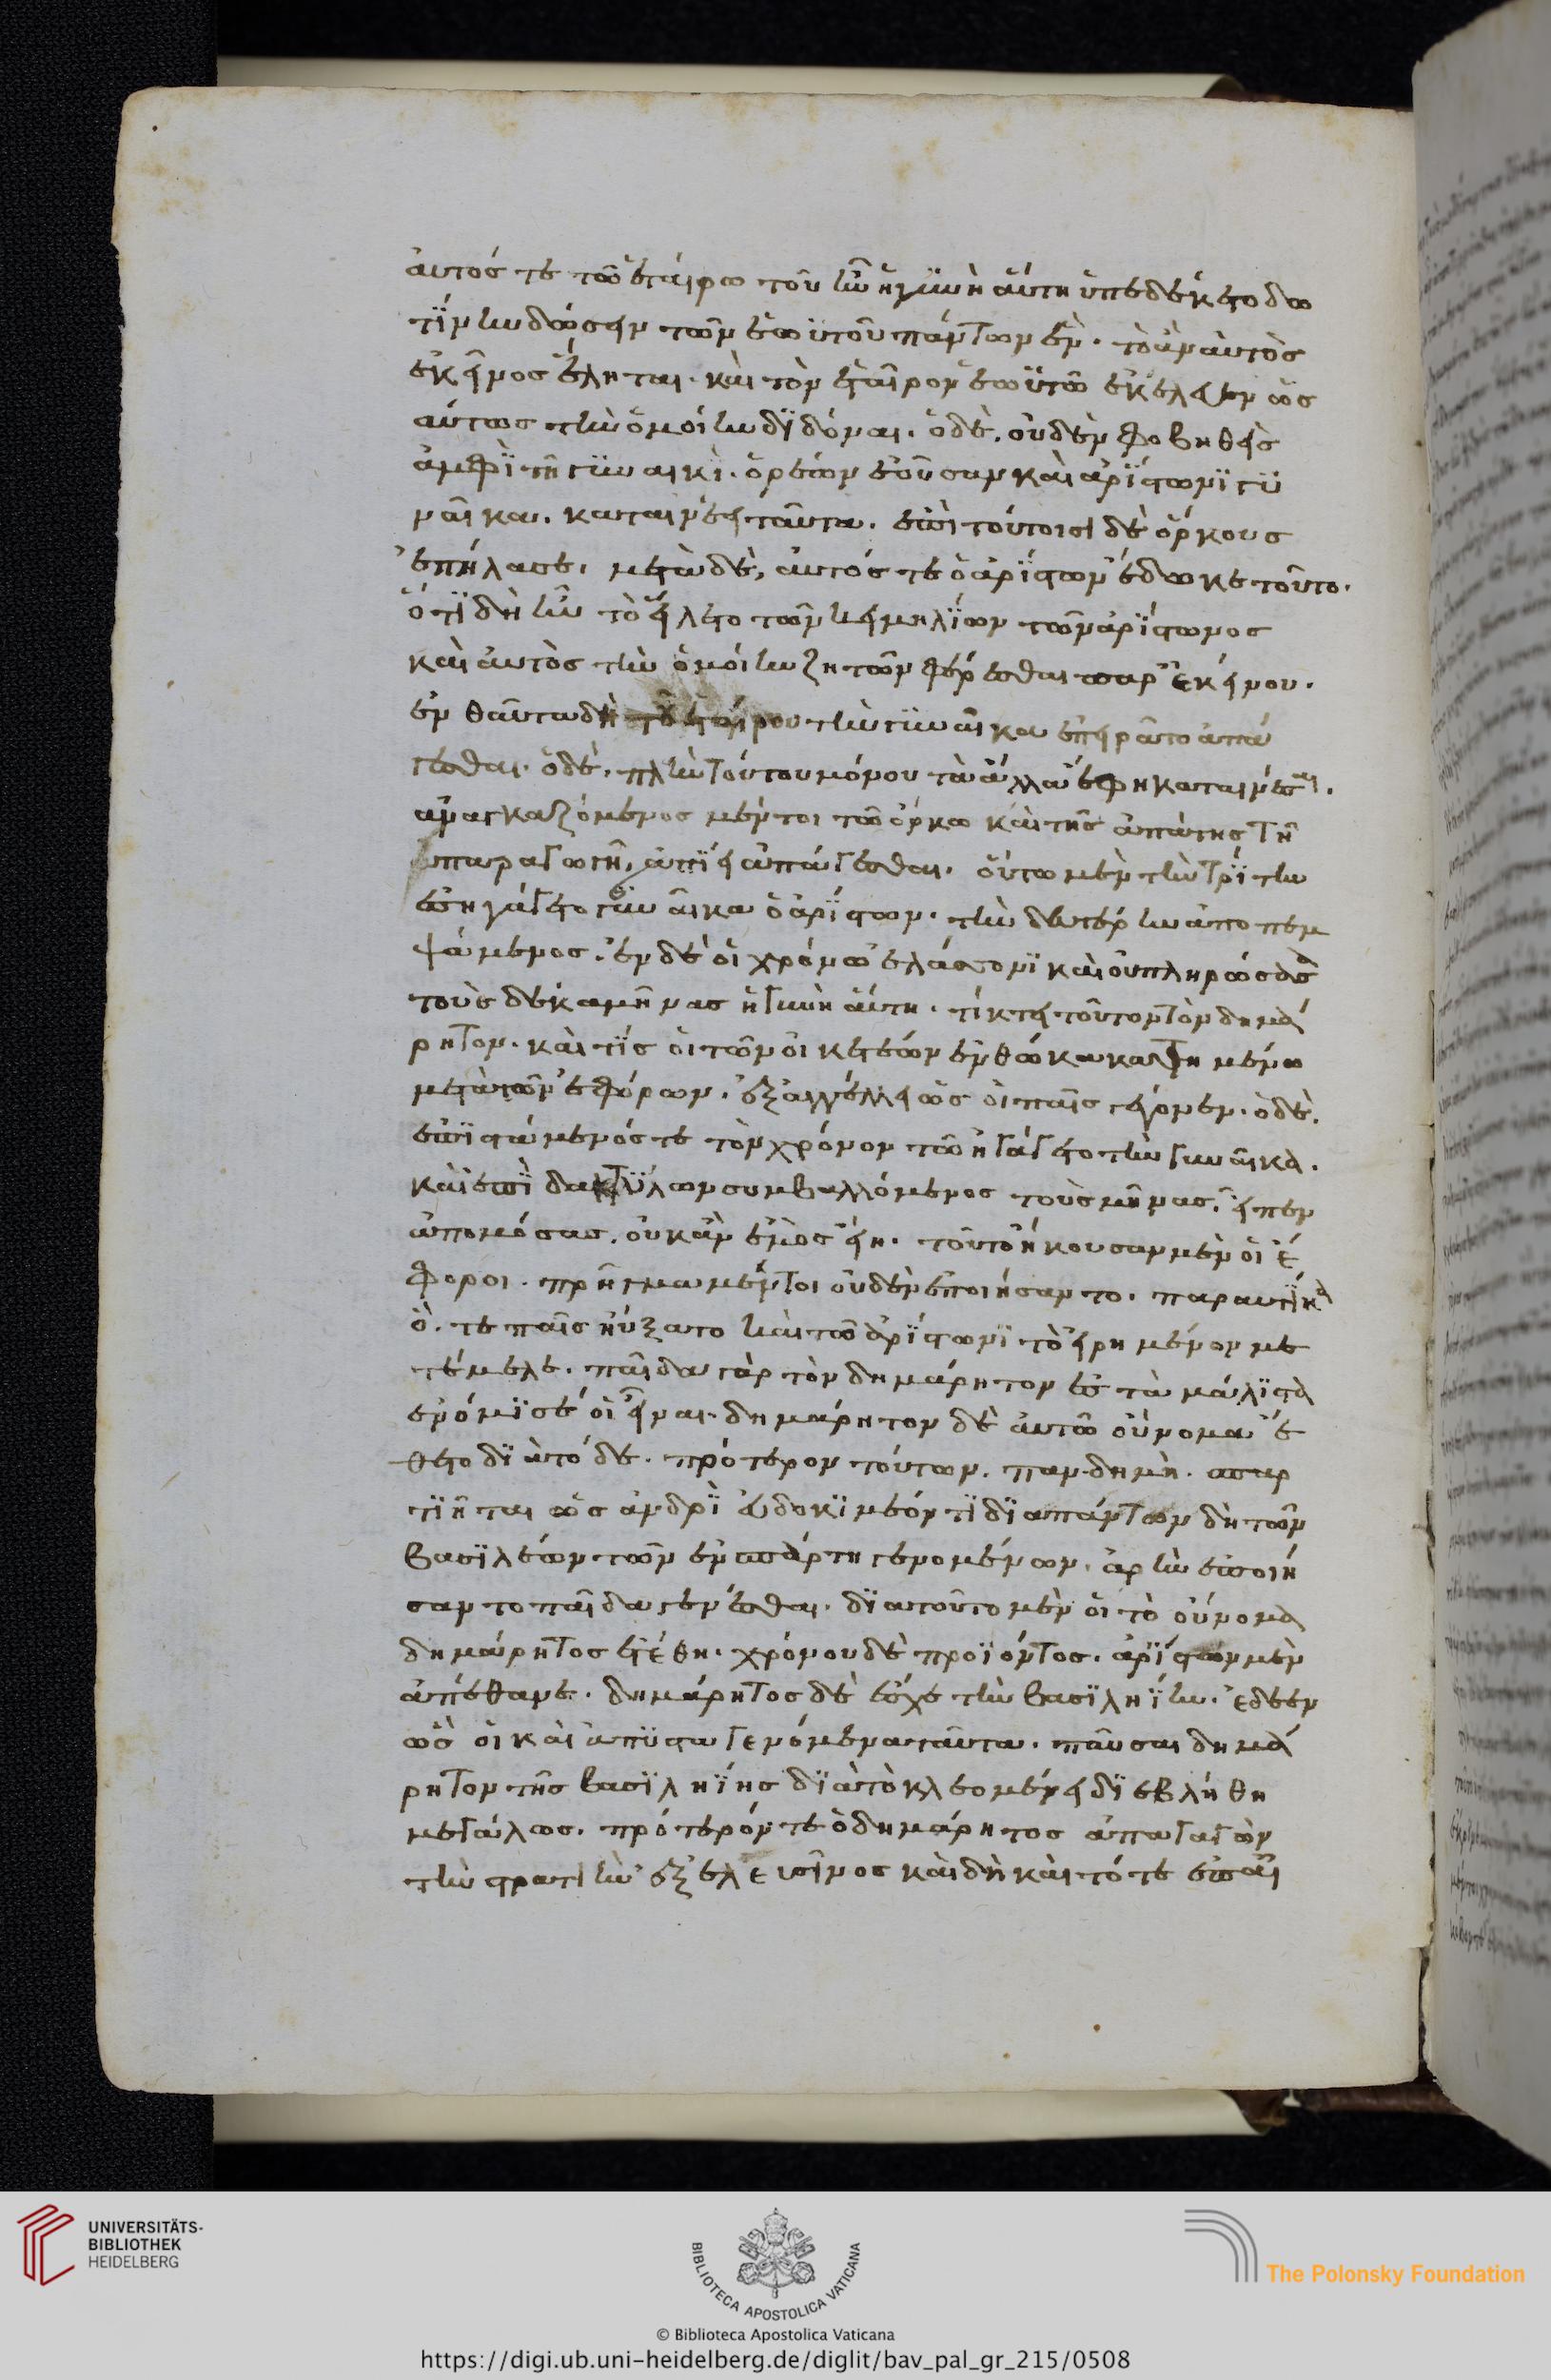 αὐτός τε τῶ ἑταίρω τοῦ ἦν ἡ γϋνὴ ἄυτη ὑπεδέκετο δω
τΐνην δώσειν τῶν ἑωϋτοῦ πάντων ἕν· τὸ ἂν ἀυτὸς
ἐκεῖνος ἕληται· καὶ τὸν ἑταῖρον ἑωϋτῶ ἐκέλευεν ὡς
αύτως τὴν ὁμοίην δϊδόναι. ὁ δὲ, οὐδὲν φοβηθεὶς
ἀμφῒ τῆ γϋναικὶ. ὁρέων ἐοῦσαν καὶ ἀρΐστωνϊ γϋ
ναῖκα. καταινέει ταῦτα. ἐπὶ τούτοισι δὲ ὅρκους
ἐπήλασε. μετὰ δὲ, ἀυτός τε ὁ ἀρΐστων ἔδωκε τοῦτο.
ὅ τϊ δὴ ἦν τὸ εἵλετο τῶν κειμηλΐων τῶν ἀρΐστωνος
καὶ ἀυτὸς τὴν ὁμοίην ζητῶν φέρεσθαι παρ' ἐκείνου.
ἐν θαῦτα δὴ τοῦ ἑταίρου τὴν γϋναῖκα ἐπειρᾶτο ἀπά
γεσθαι. ὁ δὲ, πλὴν τούτου μόνου τὰ ἄλλα ἔφη καταινέσαι.
ἀναγκαζόμενος μέντοι τῶ ὅρκω καὶ τῆς ἀπάτης τῆ
παραγωγῆ, ἀπΐει ἀπάγεσθαι. οὕτω μὲν τὴν τρίτην
ἐσηγάγετο γϋναῖκα ὁ ἀρΐστων. τὴν δευτέρην ἀποπεμ
ψάμενος. ἐν δέ οἱ χρόνω ἐλάσσονϊ καὶ οὐ πληρώσασα
τοὺς δέκα μῆνας ἡ γυνὴ ἄυτη. τίκτει τοῦτον τὸν δημά
ρητον. καὶ τΐς οἱ τῶν οἰκετέων ἐν θώκω κατημένω
μετὰ τῶν ἐφόρων. ἐξαγγέλλει ὥς οἱ παῖς γέγονεν. ὁ δὲ.
ἐπϊστάμενός τε τὸν χρόνον τῶ ἠγάγετο τὴν γυναῖκα.
καὶ ἐπῒ δακτΰλων συμβαλλόμενος τοὺς μῆνας. εἶπεν
ἀπομόσας. οὐκ ἂν ἐμὸς εἴη. τοῦτο ἤκουσαν μὲν οἱ ἔ
φοροι. πρῆγμα μέντοι οὐδὲν ἐποιήσαντο. παραυτΐκα
ὅ. τε παῖς ηὔξατο καὶ τῶ ἀρΐστωνϊ τὸ εἰρημένον με
τέμελε. παῖδα γὰρ τὸν δημάρητον ἐς τὰ μάλϊστα
ἐνόμϊσέ οἱ εἶναι. δημάρητον δὲ ἀυτῶ οὔνομα ἔ
θετο δϊὰ τόδε. πρότερον τούτων. πανδημὴ. σπαρ
τϊῆται ὡς ἀνδρῒ εὐδοκϊμέοντϊ δϊὰ πάντων δὴ τῶν
βασϊλέων τῶν ἐν σπάρτη γενομένων. ἀρὴν ἐποιή
σαντο παῖδα γενέσθαι. δϊὰ τοῦτο μὲν οἱ τὸ οὔνομα
δημάρητος ἐτέθη. χρόνου δὲ προϊόντος. ἀρΐστων μὲν
ἀπέθανε. δημάρητος δὲ ἔσχε τὴν βασϊληΐην. ἔδεεν
ὥς οἱ καὶ ἀπϋστα γενόμενα ταῦτα. παῦσαι δημά
ρητον τῆς βασϊληΐης δϊὰ τὸ κλεομένει δϊεβλήθη
μεγάλως. πρότερόν τε ὁ δημάρητος ἀπαγαγὼν
τὴν στρατιὴν ἐξ ἐλευσῖνος καὶ δὴ καὶ τότε ἐπ' αἰ
UNIVERSITÄTS-
BIBLIOTHEK
HEIDELBERG
BIBLIOTECA APOSTOLICA VATICANA
The Polonsky Foundation
© Biblioteca Apostolica Vaticana
https://digi.ub.uni-heidelberg.de/diglit/bav_pal_gr_215/0508